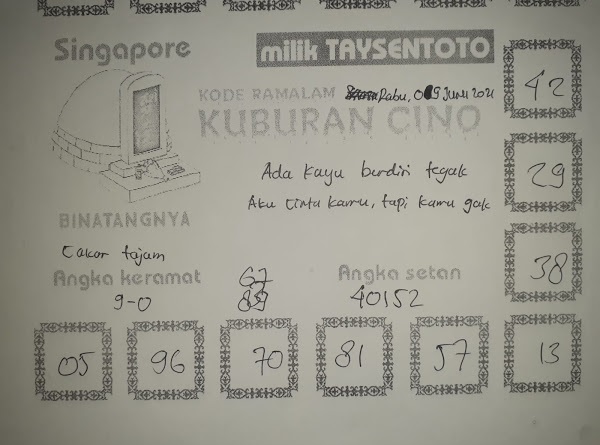 Singapore
milik TAYSENTOTO
42
KODE RAMALAM Rabu, 09 Juni 2021
KUBURAN CINO
Ada kayu berdiri tegak
29
Aku cinta kamu, tapi kamu gak
BINATANGNYA
Cakar tajam
38
Angka keramat
67
Angka setan
9-0
89
40152
05
96
70
81
57
13